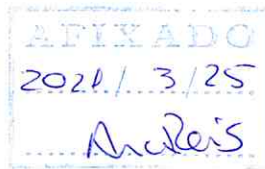 AFIXADO
2021/3/25
AnaReis